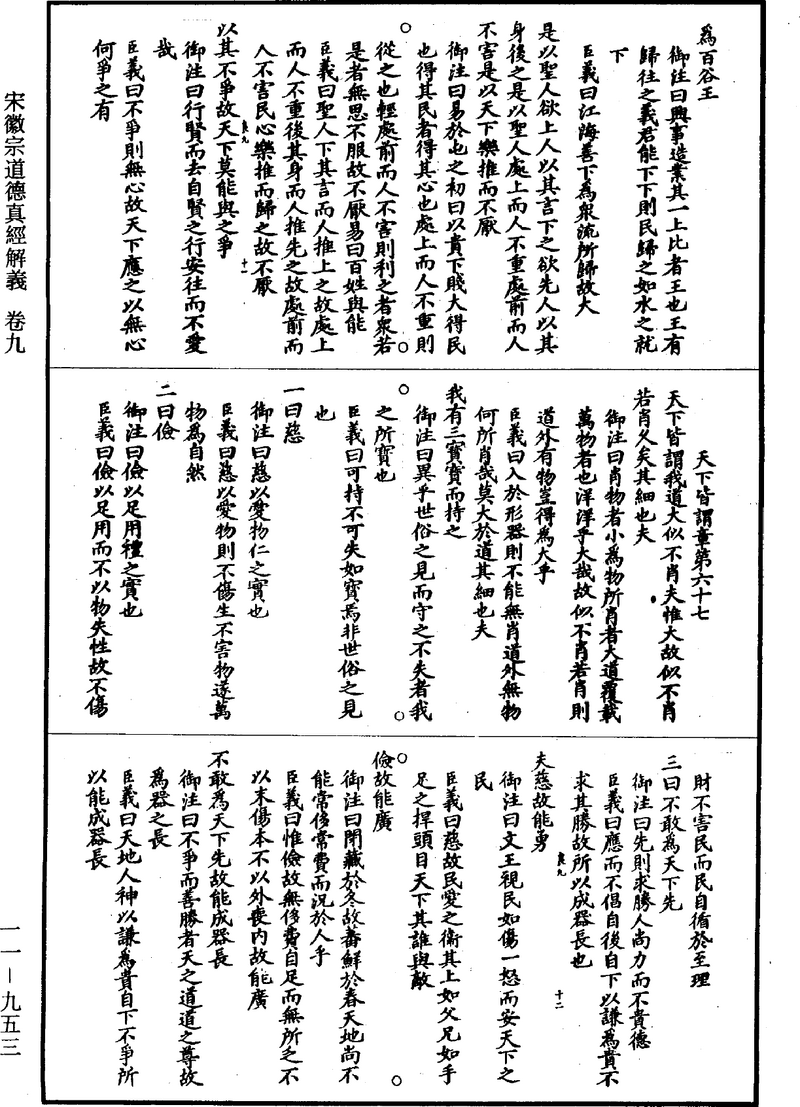 宋徽宗道德真經解義　卷九
一一—九五三
為百谷王
御注曰興事造業其一上比者王也王有
歸往之義君能下下則民歸之如水之就
下
臣義曰江海善下為衆流所歸故大
是以聖人欲上人以其言下之欲先人以其
身後之是以聖人處上而人不重處前而人
不害是以天下樂推而不厭
御注曰易於屯之初曰以貴下賤大得民
也得其民者得其心也處上而人不重則
從之也輕處前而人不害則利之者衆若
是者無思不服故不厭易曰百姓與能
臣義曰聖人下其言而人推上之故處上
而人不重後其身而人推先之故處前而
人不害民心樂推而歸之故不厭
以其不爭故天下莫能與之爭
御注曰行賢而去自賢之行安往而不愛
哉
臣義曰不爭則無心故天下應之以無心
何爭之有
天下皆謂章第六十七
天下皆謂我道大似不肖夫惟大故似不肖
若肖久矣其細也夫
御注曰肖物者小為物所肖者大道覆載
萬物者也洋洋乎大哉故似不肖若肖則
道外有物豈得為大乎
臣義曰入於形器則不能無肖道外無物
何所肖哉莫大於道其細也夫
我有三寶寶而持之
御注曰異乎世俗之見而守之不失者我
之所寶也
臣義曰可持不可失如寶焉非世俗之見
也
一曰慈
御注曰慈以愛物仁之實也
臣義曰慈以愛物則不傷生不害物遂萬
物為自然
二曰儉
御注曰儉以足用禮之實也
臣義曰儉以足用而不以物失性故不傷
財不害民而民自循於至理
三曰不敢為天下先
御注曰先則求勝人尚力而不貴德
臣義曰應而不倡自後自下以謙為貴不
求其勝故所以成器長也
夫慈故能勇
御注曰文王視民如傷一怒而安天下之
民
臣義曰慈故民愛之衛其上如父兄如手
足之捍頭目天下其誰與敵
儉故能廣
御注曰閉藏於冬故蕃鮮於春天地尚不
能常侈常費而況於人乎
臣義曰惟儉故無侈費自足而無所乏不
以末傷本不以外喪内故能廣
不敢為天下先故能成器長
御注曰不爭而善勝者天之道道之尊故
為器之長
臣義曰天地人神以謙為貴自下不爭所
以能成器長